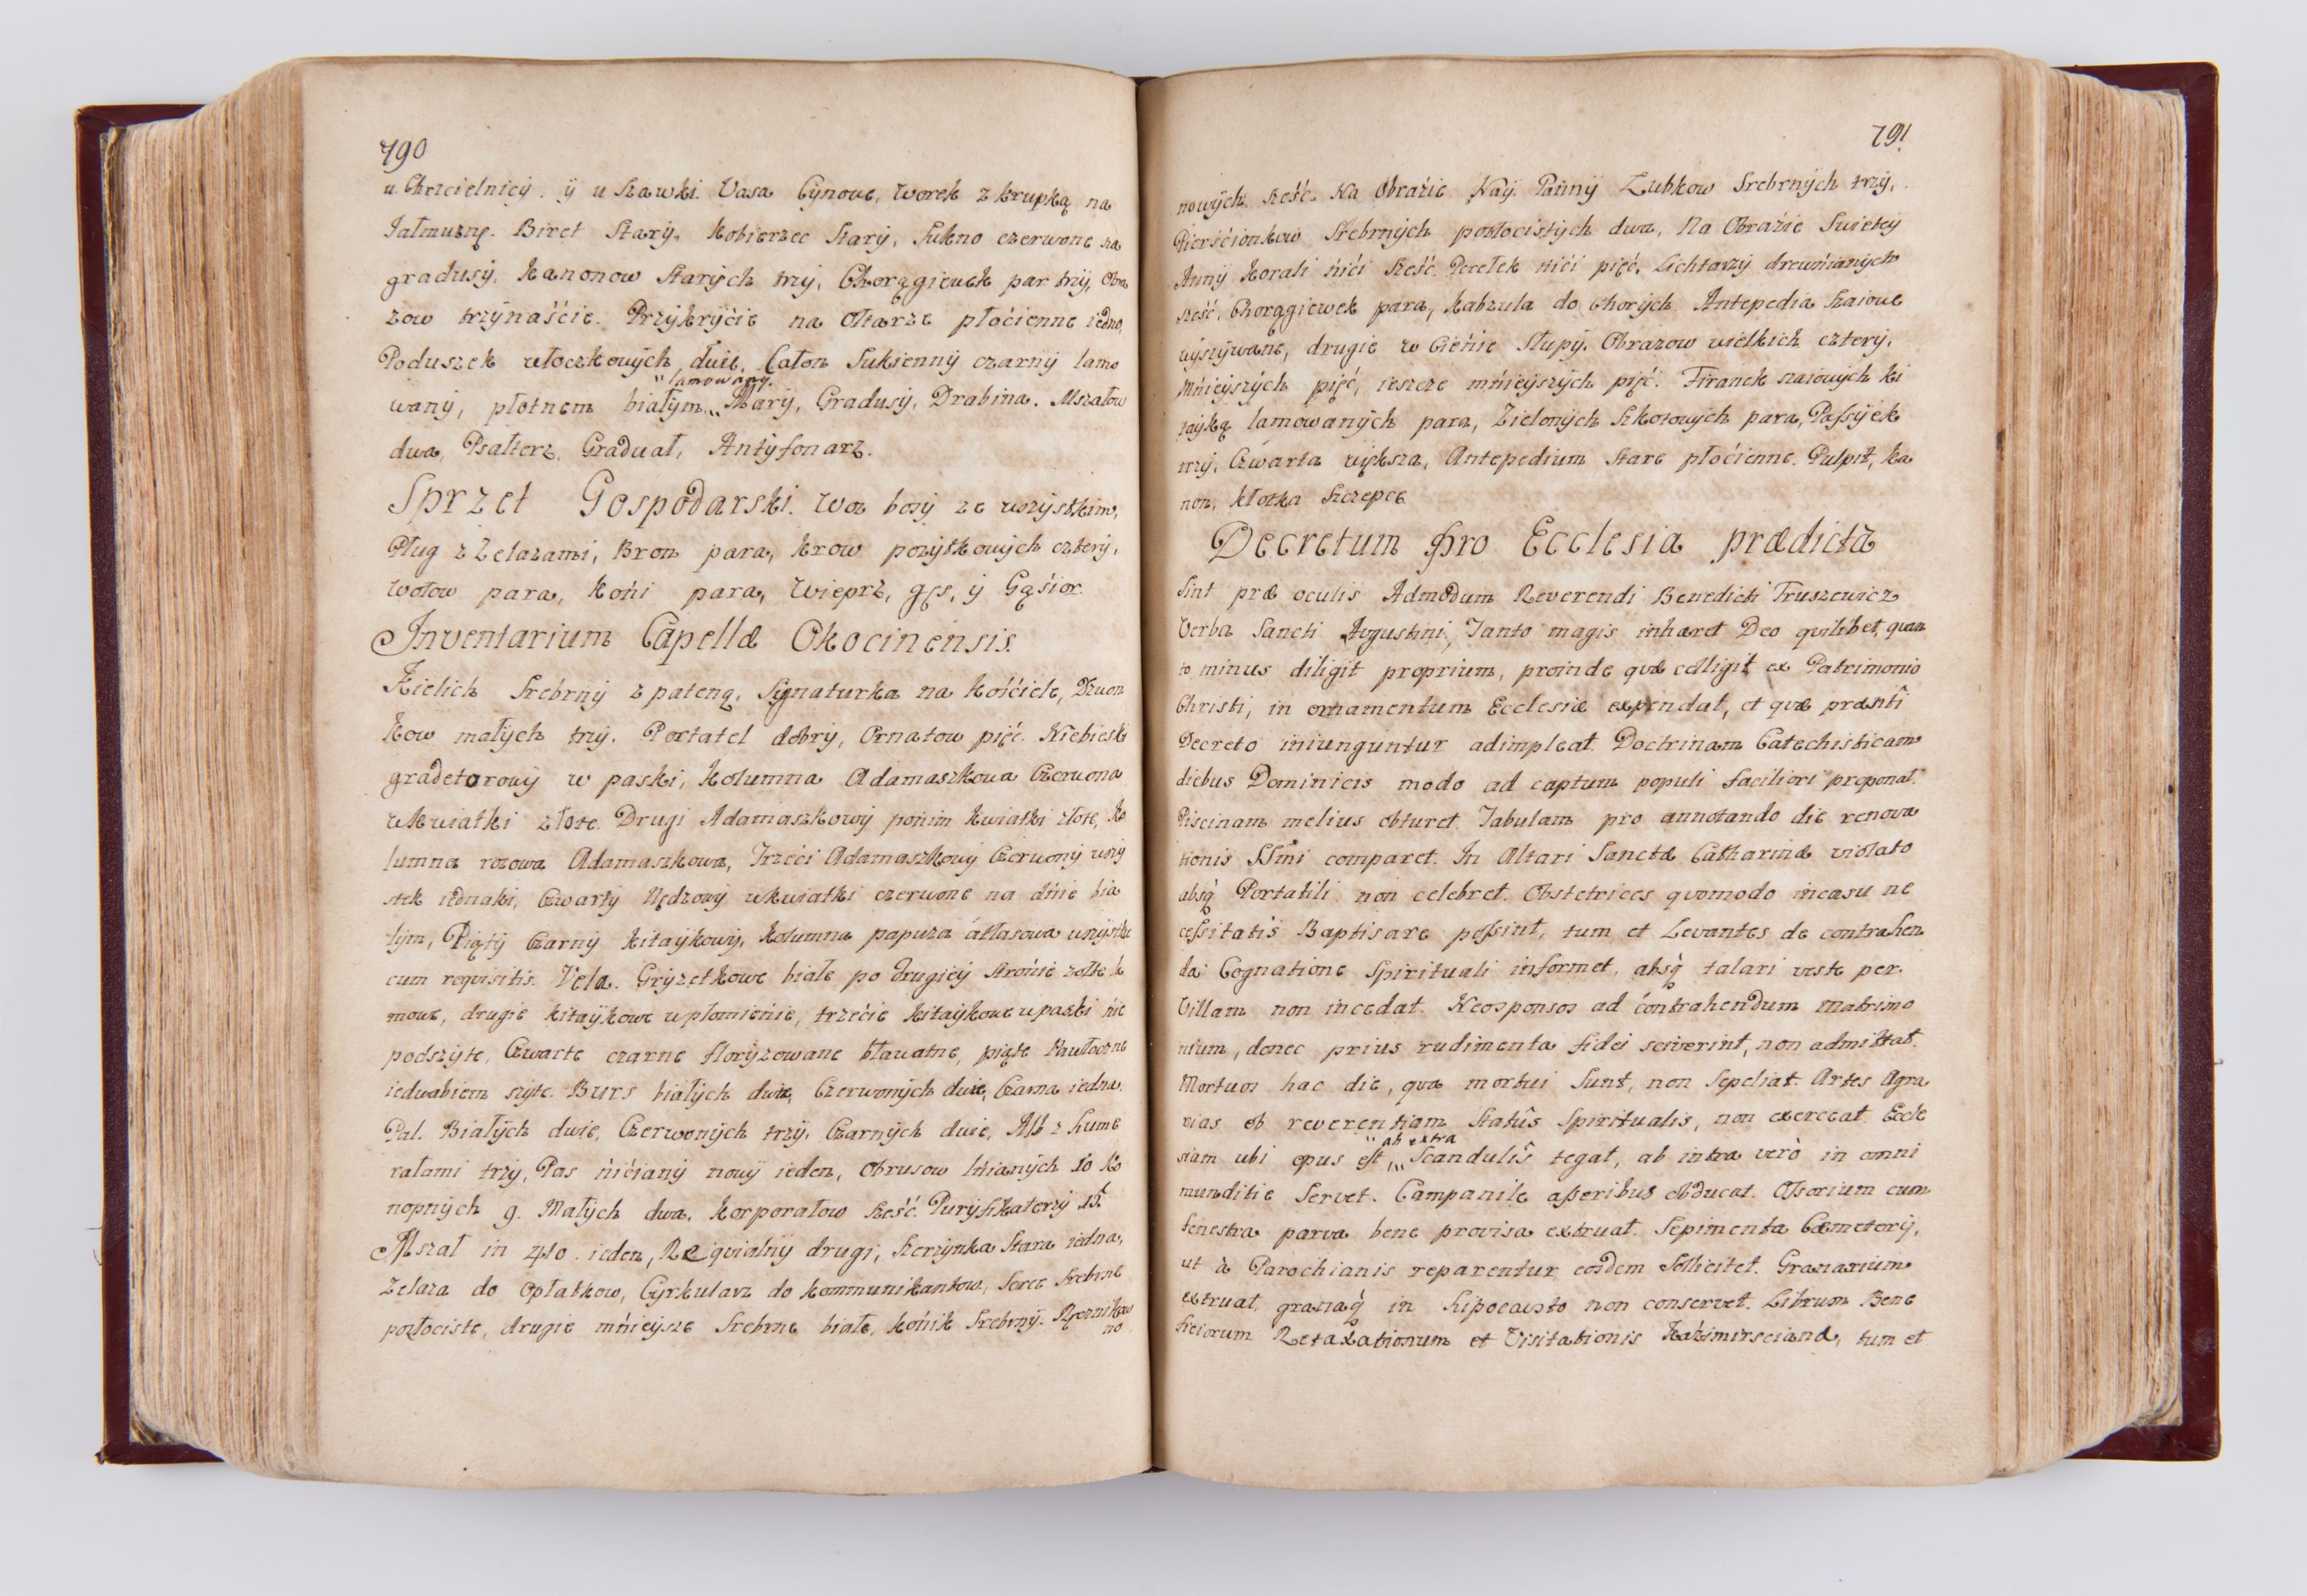 790
u Chrzcielnicÿ. ÿ u Szawki. Vasa Cynowe, Worek z krupką na
Jałmuznę. Biret Starÿ, Kobierzec Starÿ, Sukno czerwone na
gradusÿ, Kanonow Starÿch trzÿ, Chorągiewek par trzÿ, Obra
zow trzÿnaście. Przÿkrÿcie na Ołtarze płócienne iedno,
Poduszek włoczkowÿch dwie, Całon Sukiennÿ czarnÿ lamo
"lamowanÿ.
wanÿ, płotnem białÿm,,, Marÿ, Gradusÿ, Drabina. Mszałow
dwa, Psałterz, Graduał, Antÿfonarz.
Sprzet Gospodarski. Woz bosÿ ze wszÿstkim,
Pług z Zelazami, Bron para, Krow pozÿtkowÿch czterÿ,
Wołow para, Końi para, Wieprz, gęs, ÿ Gąśior.
Inventarium Capellæ Okocinensis.
Kielich Srebrnÿ z pateną, Sÿgnaturka na Kościele, Dzwon
kow małÿch trzÿ. Portatel dobrÿ, Ornatow pięć. Niebieski
gradetorowÿ w paski, Kolumna Adamaszkowa Czerwona
wkwiatki złote. Drugi Adamaszkowÿ ponim kwiatki złote, Ko
lumna rozowa Adamaszkowa, Trzeci Adamaszkowÿ Czerwonÿ wszÿ
stek iednaki, Czwartÿ Nędzowÿ wkwiatki czerwone na dńie bia
łÿm, Piątÿ Czarnÿ Kitaÿkowÿ, Kolumna papuza átłasowa wszÿstkie
cum reqvisitis. Vela. Grÿzetkowe białe po drugieÿ strońie zołte k
mowe, drugie kitaÿkowe wpłomienie, trzećie Kitaÿkowe wpaski ńie
podszÿte, Czwarte czarne florÿzowane bławatne, piąte Pawłoczne
iedwabiem szÿte. Burs białÿch dwie, Czerwonÿch dwie, Czarna iedna.
Pal. Białÿch dwie, Czerwonÿch trzÿ, Czarnÿch dwie, Alb z hume
rałami trzÿ, Pas ńićianÿ nowÿ ieden, Obrusow lńianÿch 10 Ko
nopnÿch 9. Małÿch dwa, Korporałow sześć. Purÿfikaterzÿ 15.
Mszał in 4to. ieden, Reqvialnÿ drugi, Skrzÿnka Stara iedna,
Zelaza do Opłatkow, Cÿrkularz do Kommunikantow, Serce Srebrne
pozłociste, drugie mńieÿsze Srebrne białe, Kóńik Srebrnÿ.
no
791
nowÿch. sześć. Na Obraźie Naÿ. Pannÿ Ząbkow Srebrnÿch trzÿ,
Pierśćionkow Srebrnÿch pozłocistÿch dwa, Na Obraźie Swieteÿ
Annÿ Korali ńići sześć. Perełek nići pięć, Lichtarzÿ drewńianÿch
sześć, Chorągiewek para, Kabzula do Chorÿch. Antepedia Szaiowe
wÿszÿwane, drugie w Cieńie Słupÿ. Obrazow wielkich czterÿ,
Mńieÿszÿch pięć, ieszcze mńieÿszÿch pięć. Firanek szaiowÿch ki
taÿką lamowanÿch para, Zielonÿch Szkotowÿch para, Passÿiek
trzÿ, Czwarta większa, Antepedium Stare płócienne. Pulpit, Ka
non, Kłotka Szczepce.
Decretum pro Ecclesia prædicta
Sint præ oculis Admodum Reverendi Benedicti Truszewicz
Verba Sancti Avgustini, Tanto magis inhæret Deo qvilibet, qvan
to minus diligit proprium, proinde qvæ colligit ex Patrimonio
Christi, in ornamentum Ecclesiæ expendat, et qvæ præsntî
Decreto iniunguntur adimpleat. Doctrinam Catechisticam
diebus Dominicis modo ad captum populi faciliori proponat.
Piscinam melius obturet. Tabulam pro annotando die renova
tionis SSmi comparet. In Altari Sanctæ Catharinæ violato
absq̀ Portatili non celebret. Obstetrices qvomodo incasu ne
cessitatis Baptisare possint, tum et Levantes de contrahen
da Cognatione Spirituali informet, absq̀ talari veste per
Villam non incedat. Neosponsos ad contrahendum Matrimo
nium, donec prius rudimenta fidei sciverint, non admittat.
Mortuos hac die, qva mortui Sunt, non Sepeliat. Artes Agra
rias ob reverentiam Statûs Spiritualis, non exerceat. Eccle
" ab extra
siam ubi opus est,,, Scandulîs tegat, ab intra verò in omni
munditie Servet. Campanile asseribus obducat. Ossorium cum
fenestra parva bene provisa extruat. Sepimenta Cæmeterÿ,
ut à Parochianis reparentur eosdem Sollicitet. Granarium
extruat, granaq̀ in hipocausto non conservet. Librum Bene
ficiorum Retaxationum et Visitationis Kaźimirscianæ, tum et